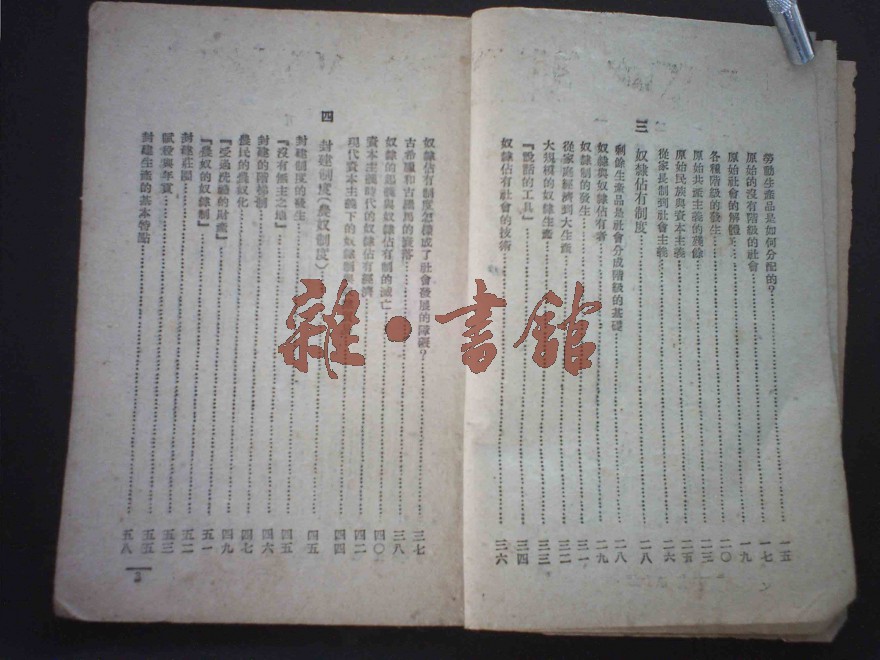 勞動生產品是如何分配的？……一五
原始的沒有階級的社會……一七
原始社會的解體……一九
各種階級的發生……二〇
原始共產主義的殘餘……二三
原始民族與資本主義……二五
從家長制到社會主義……二六
三　奴隸佔有制度……二八
剩餘生產品是社會分成階級的基礎……二八
奴隸與奴隸佔有者……二九
奴隸制的發生……三一
從家庭經濟到大生產……三二
大規模的奴隸生產……三三
『說話的工具』……三四
奴隸佔有社會的技術……三六
奴隸佔有制度怎樣成了社會發展的障礙？……三七
古希臘和古羅馬的衰落……三八
奴隸的起義與奴隸佔有制的滅亡……四〇
資本主義時代的奴隸佔有經濟……四二
現代資本主義下的奴隸制……四四
四　封建制度（農奴制度）……四五
封建制度的發生……四五
『沒有無主之地』……四六
封建的階梯制……四七
農民的農奴化……四九
『受過洗禮的財產』……五一
『農奴的奴隸制』……五二
封建莊園……五三
賦役與年貢……五五
封建生產的基本特點……五八
3
雜·書館